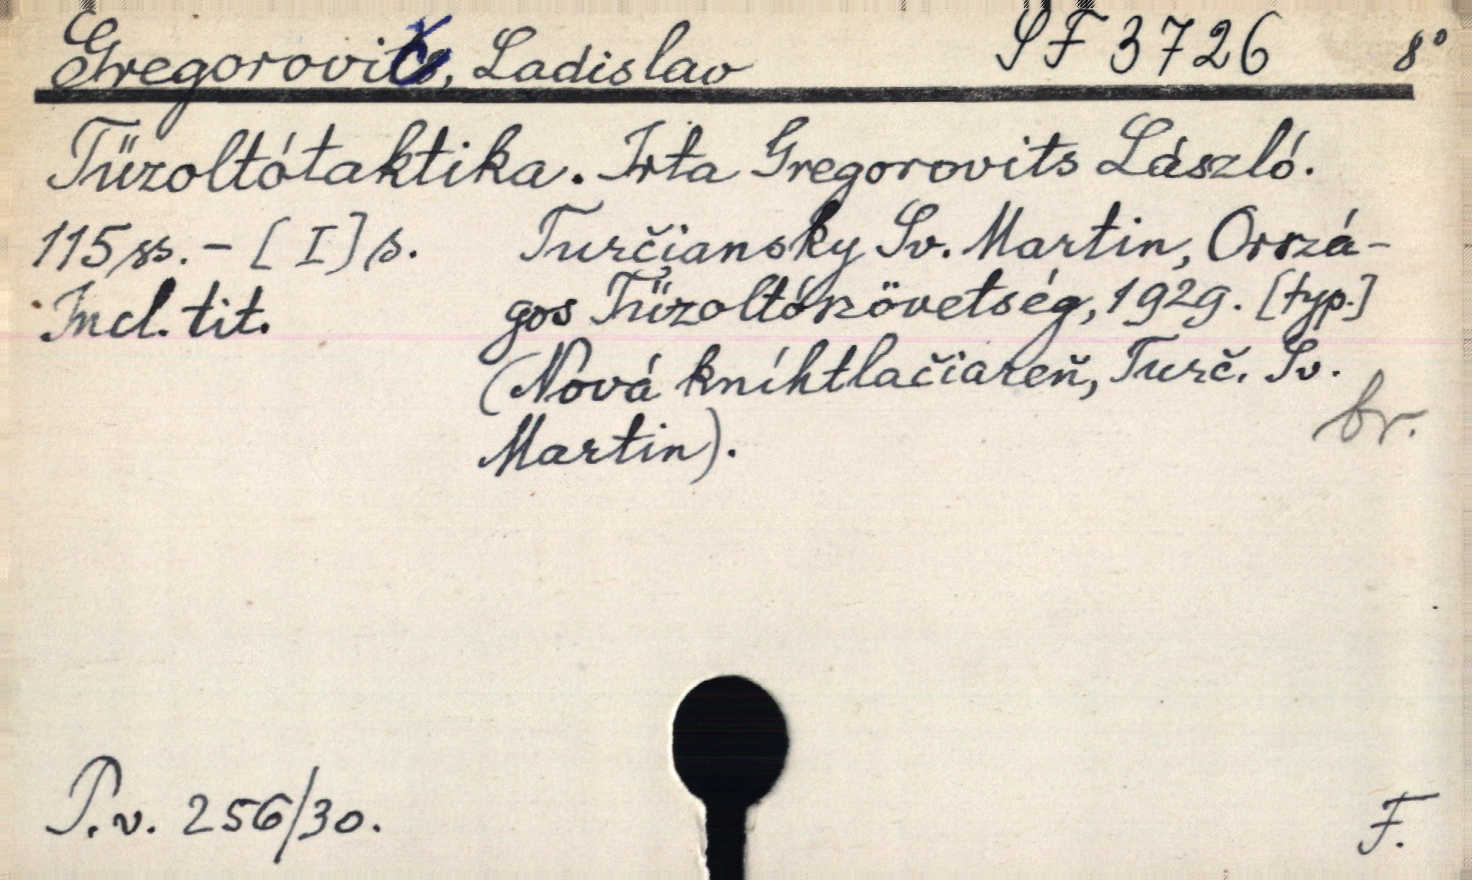 Gregorovič, Ladislav SF 3726 8°
Tűzoltótaktika. Irta Gregorovits László.
115 ss. - [I] s. Turčiansky Sv. Martin, Orszá-
Incl. tit. gos Tűzoltószövetség, 1929. [typ.]
(Nová kníhtlačiareň, Turč. Sv.
br.
Martin).
P.v. 256/30. F.